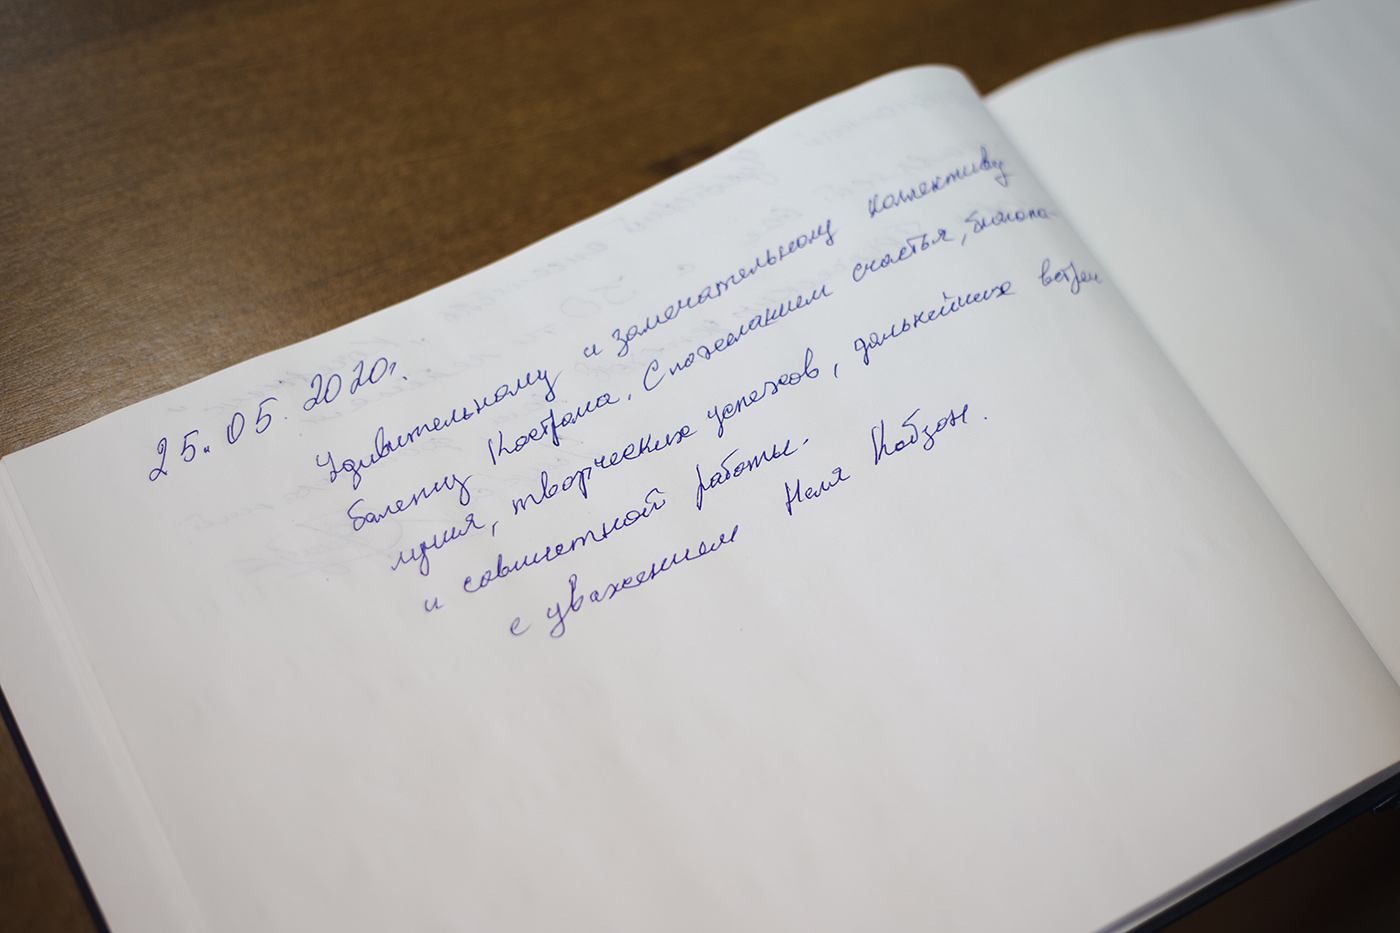 25.05.2020г.
Удивительному и замечательному коллективу
балету Кострома. С пожеланием счастья, благопо-
лучия, творческих успехов, дальнейших встреч
и совместной работы.
с уважением Неля Кобзон.